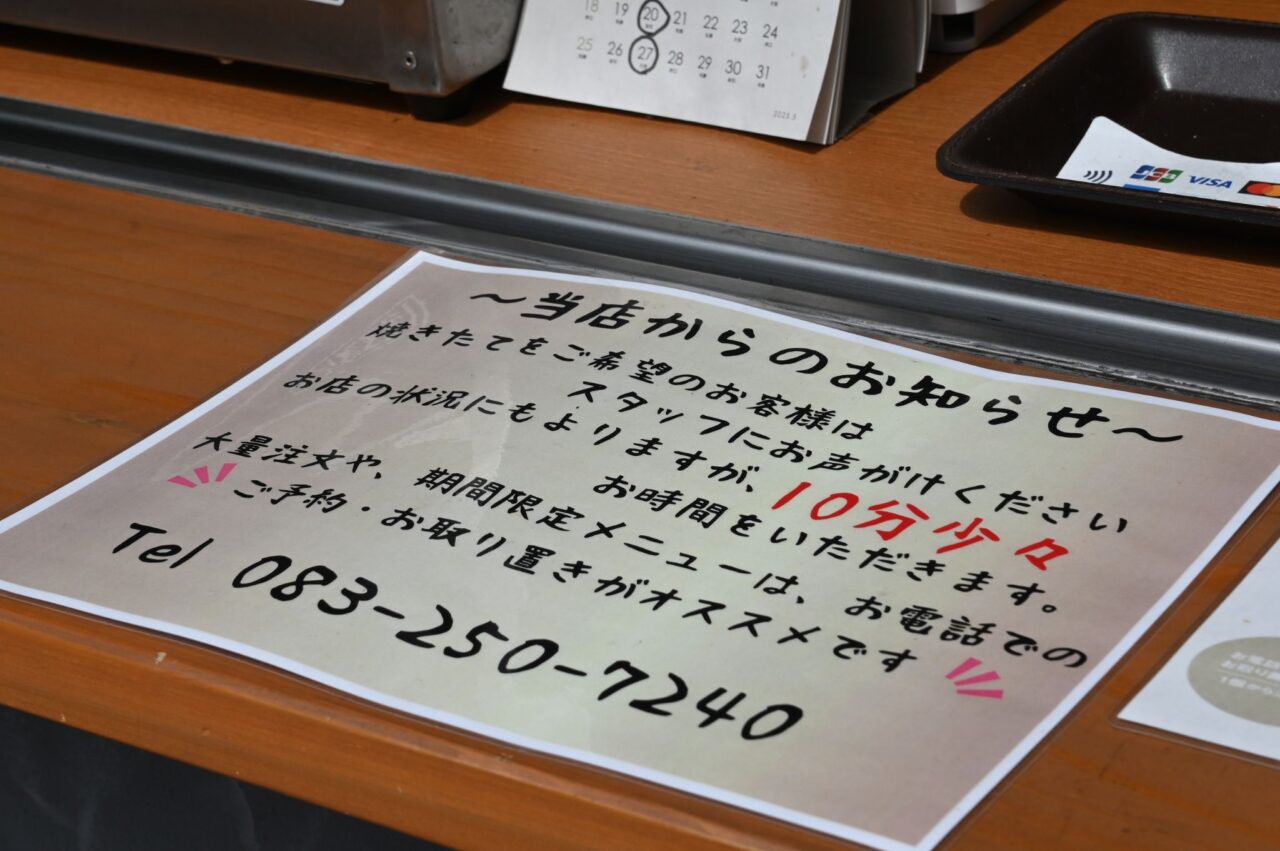 18 19 20 21 22 23 24
25 26 27 28 29 30 31
2025.5
JCB VISA
～当店からのお知らせ～
焼きたてをご希望のお客様は
スタッフにお声がけください
お店の状況にもよりますが、10分少々
お時間をいただきます。
大量注文や、期間限定メニューは、お電話での
ご予約・お取り置きがオススメです
Tel 083-250-7240
お電話
お取り置
1個から